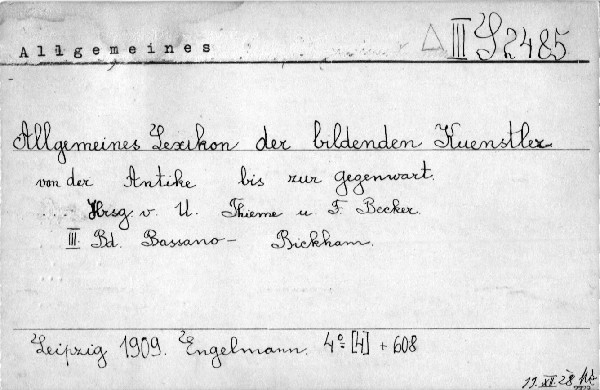 Allgemeines
III S 2485
Allgemeines Lexikon der bildenden Kuenstler
von der Antike bis zur gegenwart.
Hrsg. v. U. Thieme u F. Becker.
III. Bd. Bassano – Bickham.
Leipzig 1909. Engelmann. 4° [4] + 608